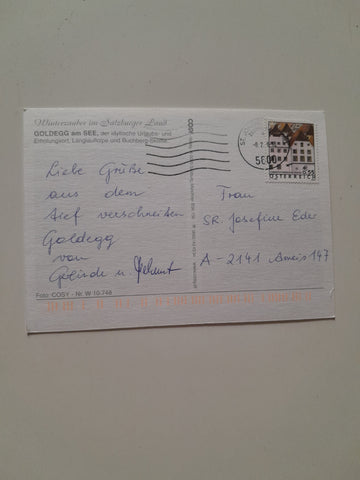 Winterzauber im Salzburger Land
GOLDEGG am SEE, der idyllische Urlaubs- und
Erholungsort, Langlaufloipe und Buchberg-Skilifte.
Liebe Grüße
aus dem
tief verschneiten
Goldegg
von
Gerlinde u. Helmut
Foto: COSY - Nr. W 10-748
COSY
5600
ÖSTERREICH
Frau
SR. Josefine Eder
A-2141 Ameis 147